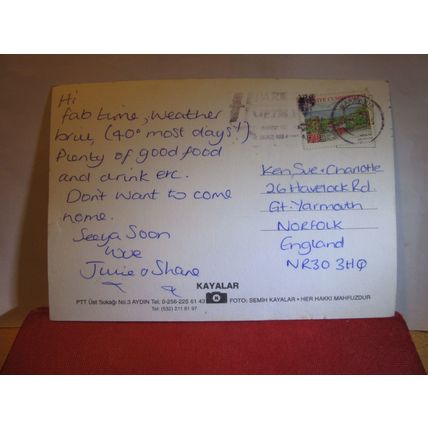 Hi
fab time, weather
brill, (40° most days!)
Plenty of good food
and drink etc.
Don't want to come
home.
Seeya Soon
Julie & Shane
Ken, Sue + Charlotte
26 Havelock Rd.
Gt. Yarmouth
NORFOLK
England
NR30 3HQ
KAYALAR
PTT Üst Sokağı No:3 AYDIN Tel: 0-256-225 61 43 FOTO: SEMİH KAYALAR • HER HAKKI MAHFUZDUR
Tel: (532) 211 81 97